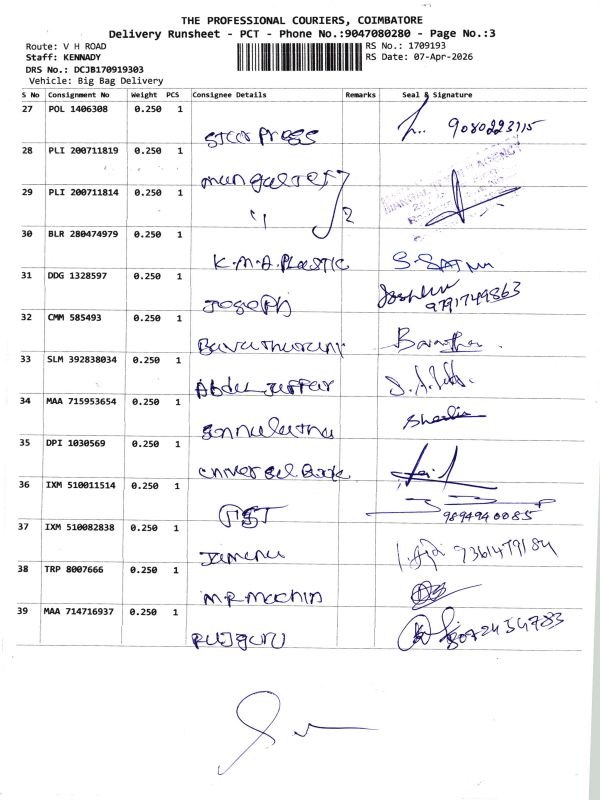 THE PROFESSIONAL COURIERS, COIMBATORE
Delivery Runsheet - PCT - Phone No.:9047080280 - Page No.:3
Route: V H ROAD
RS No.: 1709193
Staff: KENNADY
RS Date: 07-Apr-2026
DRS No.: DCJB170919303
Vehicle: Big Bag Delivery
S No Consignment No Weight PCS Consignee Details Remarks Seal & Signature
27 POL 1406308 0.250 1
Star Press 9080223115
28 PLI 200711819 0.250 1
29 PLI 200711814 0.250 1
" 2
30 BLR 280474979 0.250 1
K.M.A. Plastic
31 DDG 1328597 0.250 1
Joseph 9791749863
32 CMM 585493 0.250 1
33 SLM 392838034 0.250 1
34 MAA 715953654 0.250 1
35 DPI 1030569 0.250 1
universel Book
36 IXM 510011514 0.250 1
9894940085
37 IXM 510082838 0.250 1
38 TRP 8007666 0.250 1
M.R. Machin
39 MAA 714716937 0.250 1
Rujguru